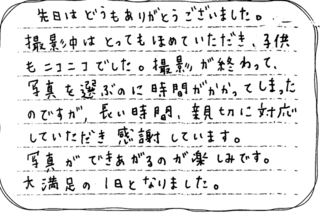 先日はどうもありがとうございました。
撮影中はとってもほめていただき、子供
もニコニコでした。撮影が終わって、
写真を選ぶのに時間がかかってしまった
のですが、長い時間、親切に対応
していただき感謝しています。
写真ができあがるのが楽しみです。
大満足の1日となりました。